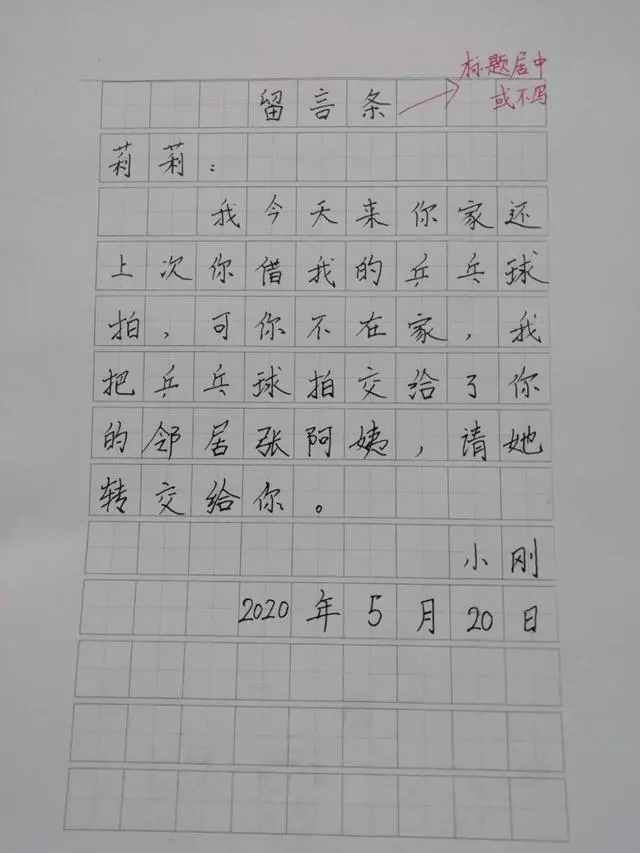 标题居中
或不写
留言条
莉莉：
我今天来你家还
上次你借我的乒乓球
拍，可你不在家，我
把乒乓球拍交给了你
的邻居张阿姨，请她
转交给你。
小刚
2020年5月20日